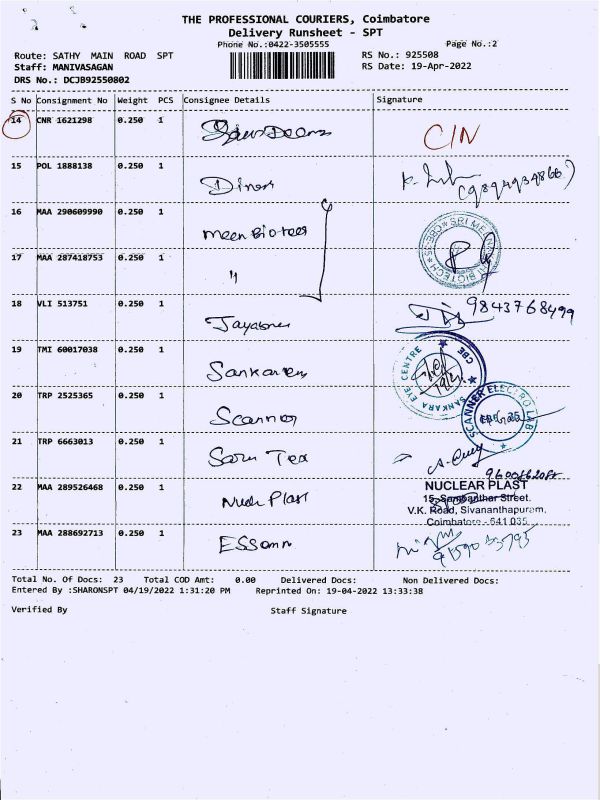 THE PROFESSIONAL COURIERS, Coimbatore
Delivery Runsheet - SPT
Phone No.:0422-3505555
Page No.:2
Route: SATHY MAIN ROAD SPT
RS No.: 925508
Staff: MANIVASAGAN
RS Date: 19-Apr-2022
DRS No.: DCJB92550802
S No Consignment No Weight PCS Consignee Details Signature
14 CNR 1621298 0.250 1 C/N
15 POL 1888138 0.250 1 Dines
16 MAA 290609990 0.250 1 Meen Biotees
17 MAA 287418753 0.250 1 "
18 VLI 513751 0.250 1 9843768499
19 TMI 60017038 0.250 1 Sankara
SANKARA EYE CENTRE CBE
20 TRP 2525365 0.250 1 Scanner
SCANNER ELECTRO LAB
21 TRP 6663013 0.250 1 Tex
22 MAA 289526468 0.250 1 Plast
NUCLEAR PLAST
15, Sambanthar Street.
V.K. Road, Sivananthapuram,
Coimbatore - 641 035
23 MAA 288692713 0.250 1 ESSann
Total No. Of Docs: 23 Total COD Amt: 0.00 Delivered Docs: Non Delivered Docs:
Entered By :SHARONSPT 04/19/2022 1:31:20 PM Reprinted On: 19-04-2022 13:33:38
Verified By Staff Signature